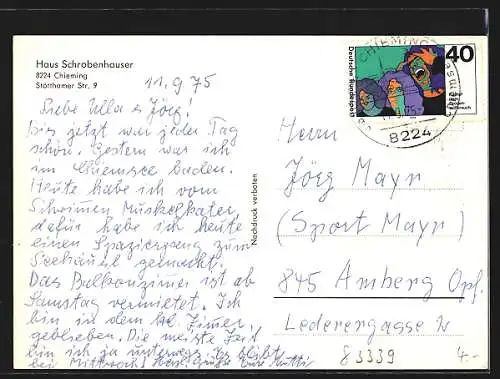 Haus Schrobenhauser
8224 Chieming
Stötthamer Str. 9
11.9.75
Liebe Ulla & Jörg!
Bis jetzt war jeder Tag
schön. Gestern war ich
im Chiemsee baden.
Heute habe ich vom
Schwimmen Muskelkater,
dafür habe ich heute
einen Spaziergang zum
Seehäusl gemacht.
Das Balkonzimmer ist ab
Samstag vermietet. Ich
bin in dem kl. Zimmer
geblieben. Die meiste Zeit
bin ich ja unterwegs. Es bleibt
bei Mittwoch. Herzl. Grüße Eure Mutti
Nachdruck verboten
CHIEMING
8224
Deutsche Bundespost
40
Herrn
Jörg Mayr
(Sport Mayr)
845 Amberg Opf.
Lederergasse
83339
4-